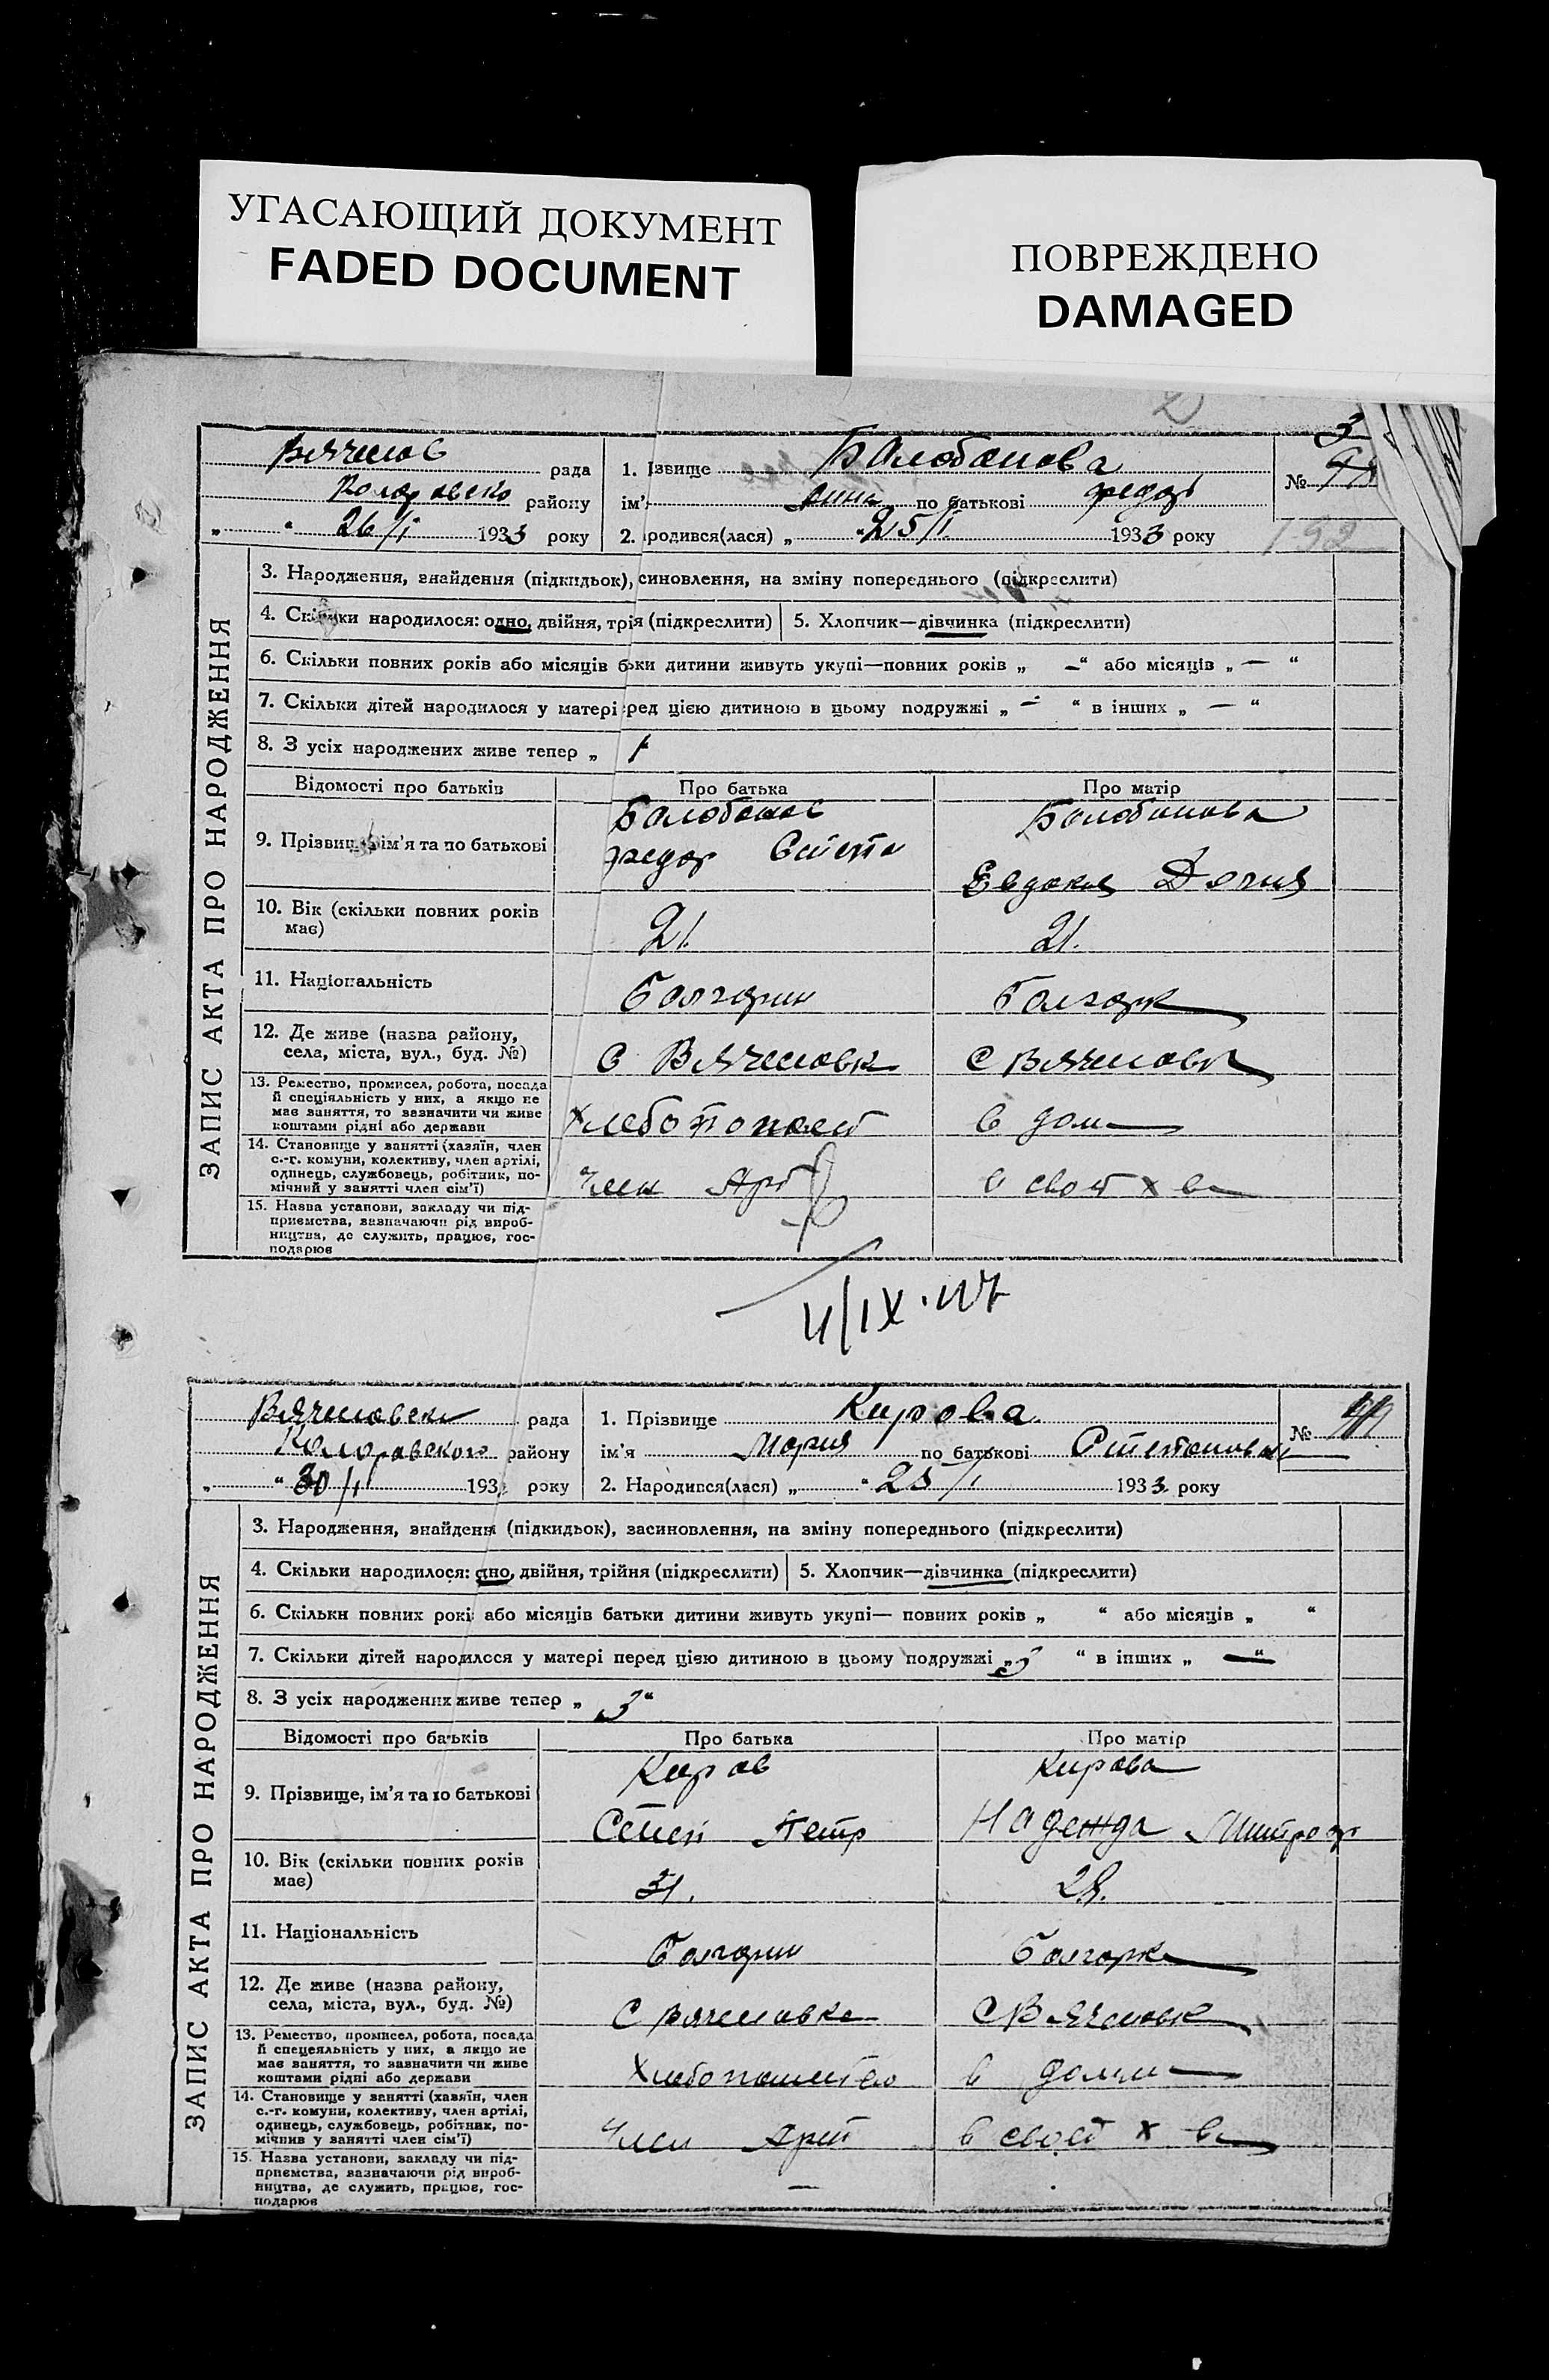 УГАСАЮЩИЙ ДОКУМЕНТ
FADED DOCUMENT
ПОВРЕЖДЕНО
DAMAGED
Вячеслов рада
Коларовско району
„ “ 26/I 1933 року
1. ізвище Балобанова
ім' Анна по батькові Федор
2. родився(лася) „ “ 25/I 1933 року
№
3
ЗАПИС АКТА ПРО НАРОДЖЕННЯ
3. Народження, знайдення (підкидьок), синовлення, на зміну попереднього (підкреслити)
4. Скільки народилося: одно, двійня, трія (підкреслити) 5. Хлопчик—дівчинка (підкреслити)
6. Скільки повних років або місяців бки дитини живуть укупі—повних років „ —“ або місяців „ — “
7. Скільки дітей народилося у матері ред цією дитиною в цьому подружжі „ — “ в інших „ — “
8. З усіх народжених живе тепер „ 1
Відомості про батьків Про батька Про матір
9. Прізвище ім'я та по батькові
Балобанов
Федор Степа
Балобанова
Евдокия
10. Вік (скільки повних років
має)
21. 21.
11. Національність
болгарин болгарк
12. Де живе (назва району,
села, міста, вул., буд. №)
С Вячеславк С Вячеславк
13. Ремество, промисел, робота, посада
й спеціяльність у них, а якщо не
має заняття, то зазначити чи живе
коштами рідні або держави
в дом
14. Становище у занятті (хазяїн, член
с.-г. комуни, колективу, член артілі,
одинець, службовець, робітник, по-
мічний у занятті член сім'ї)
член Арт в своем х ве
15. Назва установи, закладу чи під-
приємства, зазначаючи рід вироб-
ництва, де служить, працює, гос-
подарює
Вячеславск рада
Коларовского району
„ “ 30/I 193 року
1. Прізвище Кирова
ім'я Мария по батькові Степановн
2. Народився(лася) „ “ 25/I 1933 року
№
ЗАПИС АКТА ПРО НАРОДЖЕННЯ
3. Народження, знайденн (підкидьок), засиновлення, на зміну попереднього (підкреслити)
4. Скільки народилося: дно, двійня, трійня (підкреслити) 5. Хлопчик—дівчинка (підкреслити)
6. Скільки повних рокі або місяців батьки дитини живуть укупі— повних років „ “ або місяців „ “
7. Скільки дітей народилося у матері перед цією дитиною в цьому подружжі „3 “ в інших „ —“
8. З усіх народжених живе тепер „ 3“
Відомості про батьків Про батька Про матір
9. Прізвище, ім'я та по батькові
Киров
Степ Петр
Кирова
Надежда Митроф
10. Вік (скільки повних років
має)
31. 28.
11. Національність
болгарин болгарк
12. Де живе (назва району,
села, міста, вул., буд. №)
С Вячеславка С Вячеславк
13. Ремество, промисел, робота, посада
й спецеяльність у них, а якщо не
має заняття, то зазначити чи живе
коштами рідні або держави
Хлебопашество в доми
14. Становище у занятті (хазяїн, член
с.-г. комуни, колективу, член артілі,
одинець, службовець, робітник, по-
мічнив у занятті член сім'ї)
член Арт в своем х ве
15. Назва установи, закладу чи під-
приємства, зазначаючи рід вироб-
ництва, де служить, працює, гос-
подарює
—